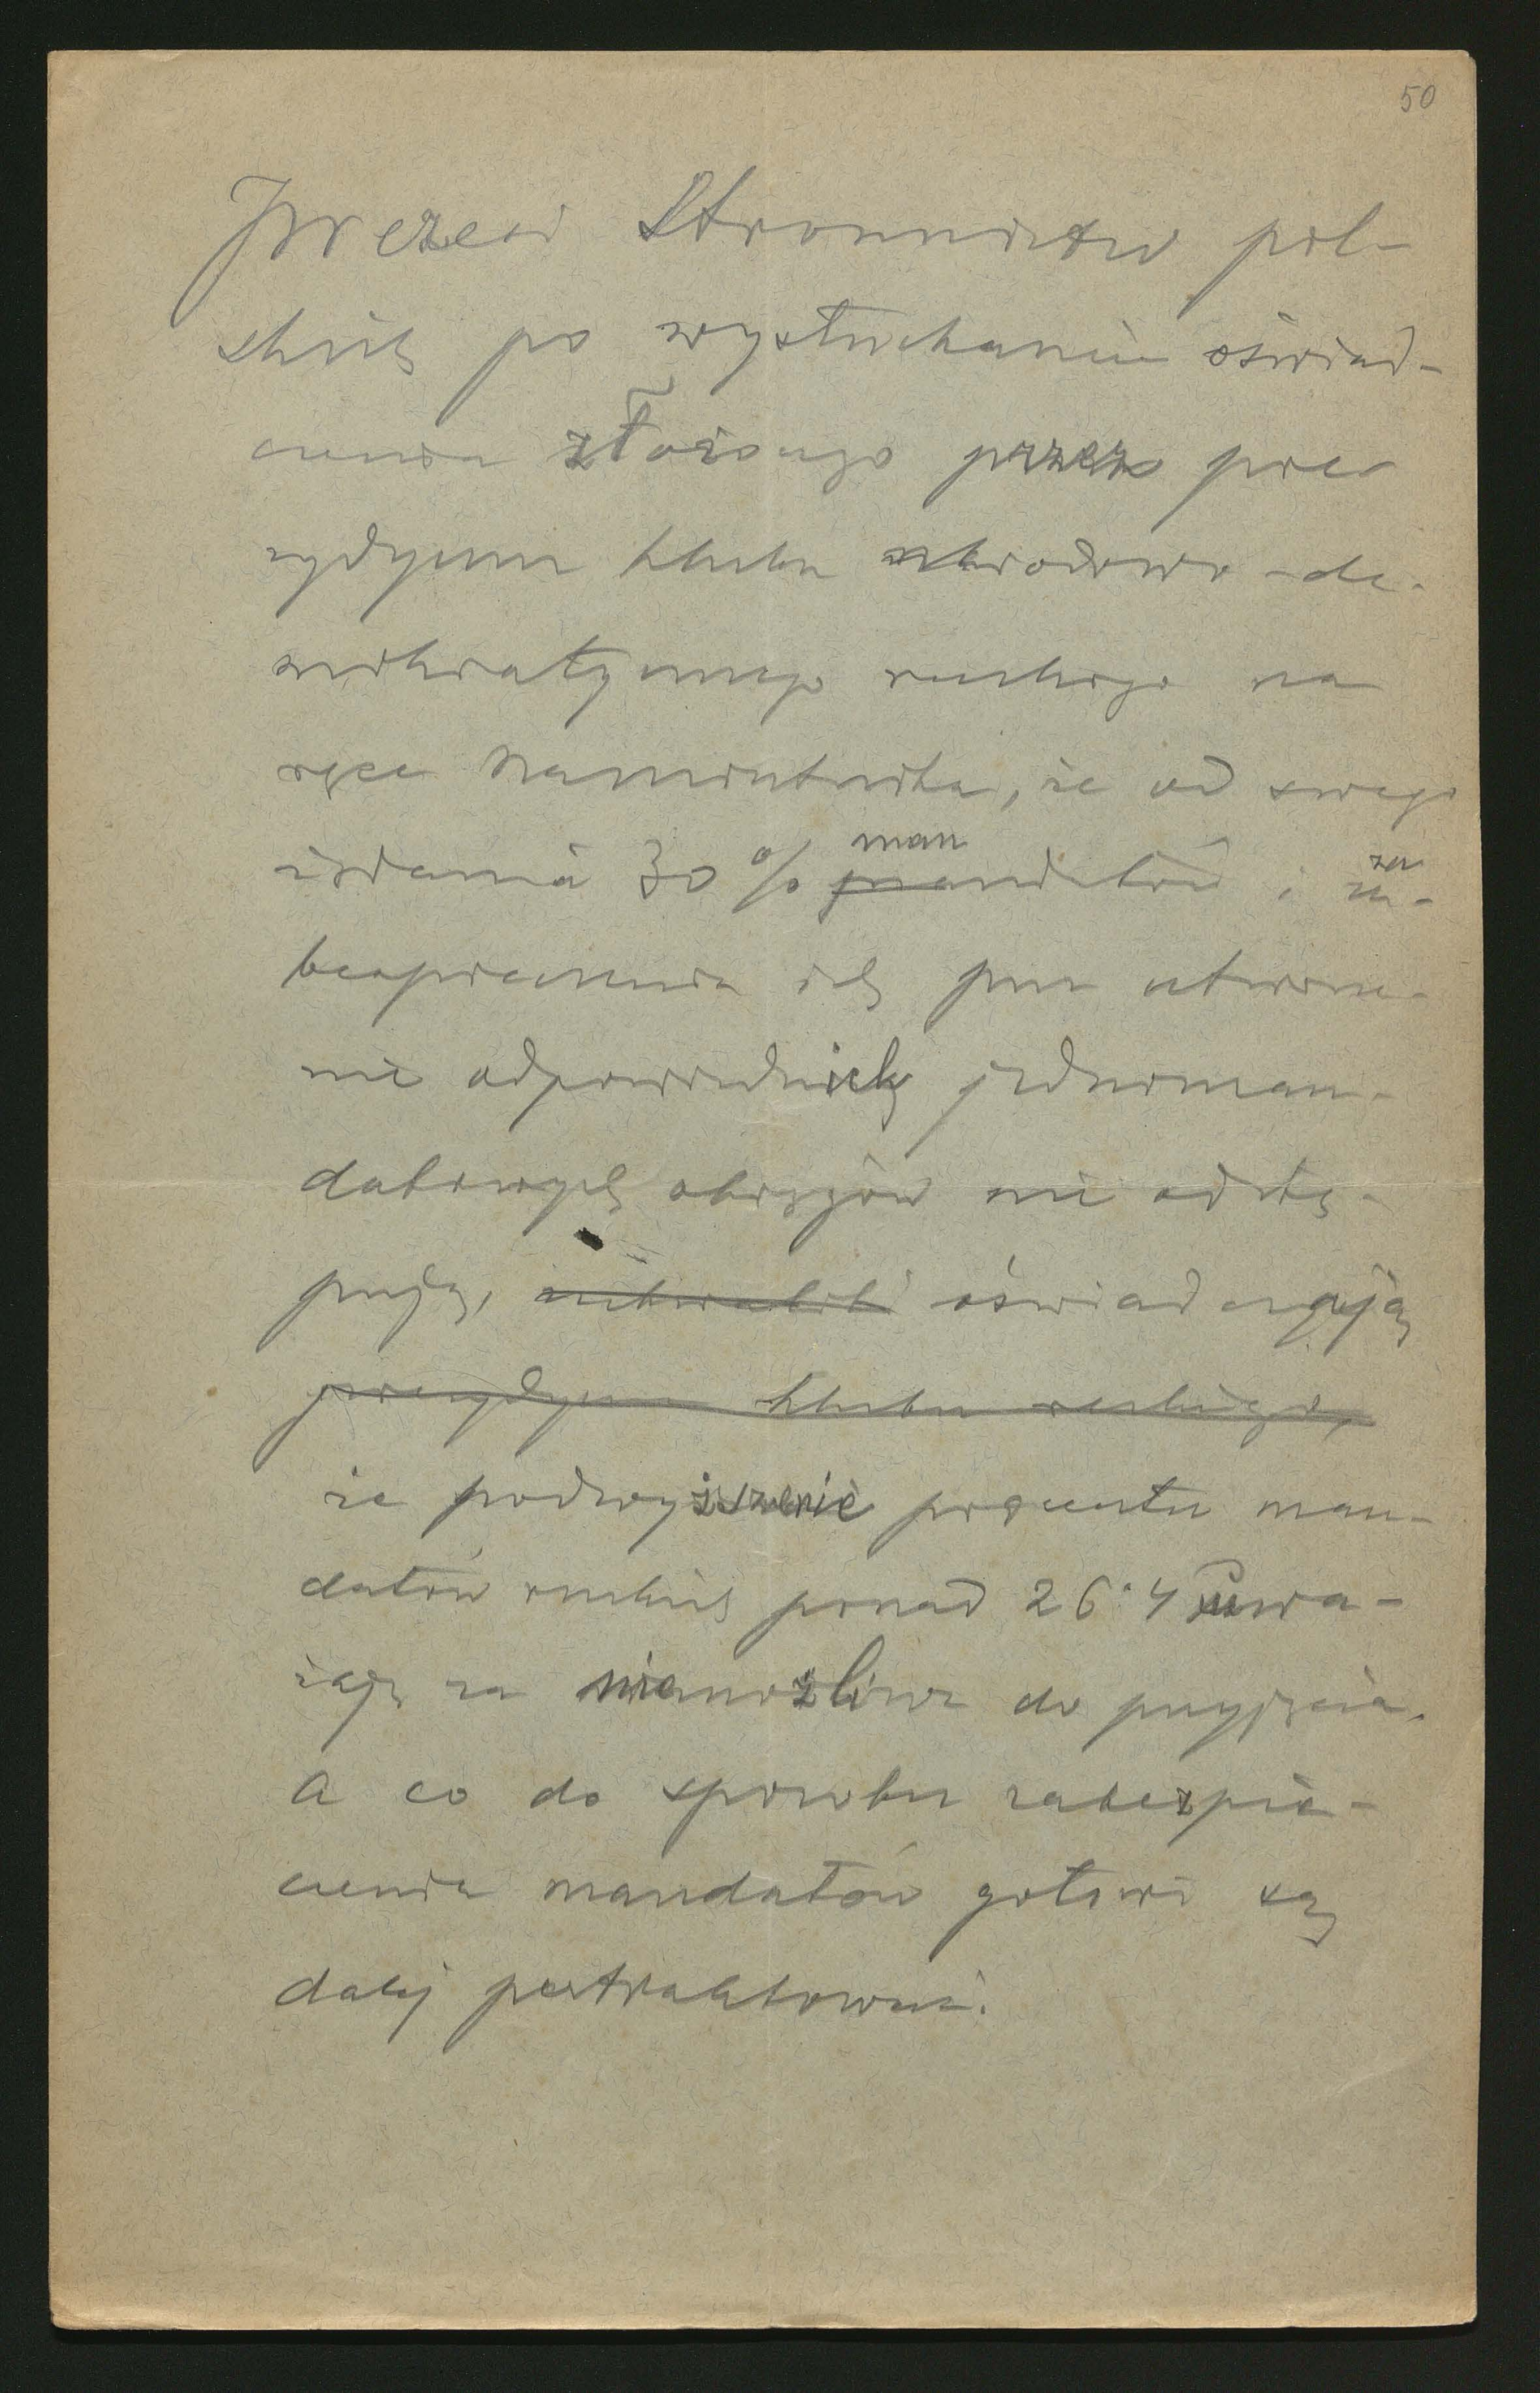 50
Prezesi Stronnictw pol-
skich po wysłuchaniu oświad-
czenia złożonego przez pre-
zydyum klubu narodowo-de-
mokratycznego ruskiego na
ręce Namiestnika, że od swego
żądania 30% man mandatów i za-
bezpieczenia ich przez utworze-
nie odpowiednich jednoman-
datowych okręgów nie odstę-
pują, uchwalili oświadczają
prezydyum klubu ruskiego,
że podwyższenie procentu man-
datów ruskich ponad 26·4 uwa-
żają za niemożliwe do przyjęcia.
A co do sposobu zabezpie-
czenia mandatów gotowi są
dalej pertraktować.